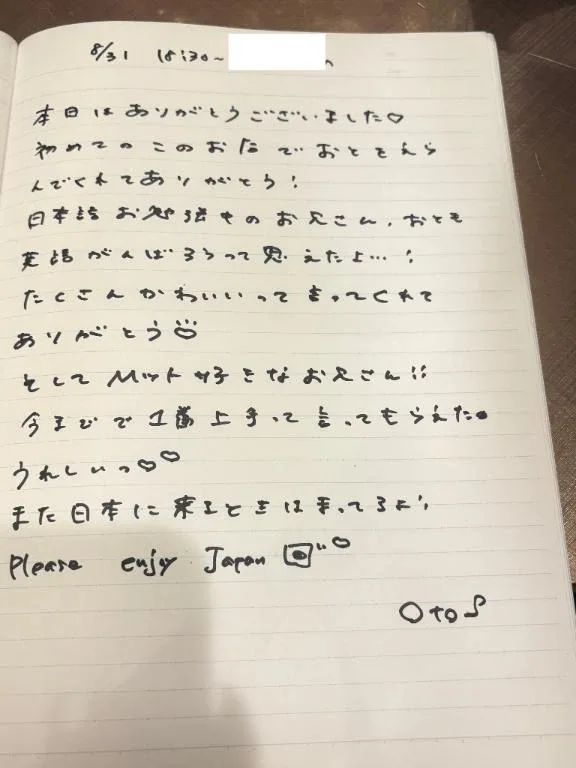 8/31 18:30~
本日はありがとうございました♡
初めてのこのお店でおとをえら
んでくれてありがとう!
日本語お勉強中のお兄さん、おとも
英語がんばろうって思えたよ…!
たくさんかわいいって言ってくれて
ありがとう
そして Mット好きなお兄さん!!
今までで1番上手って言ってもらえた
うれしいっ♡♡
また日本に来るときはまってるよ!
Please enjoy Japan ♡
Oto